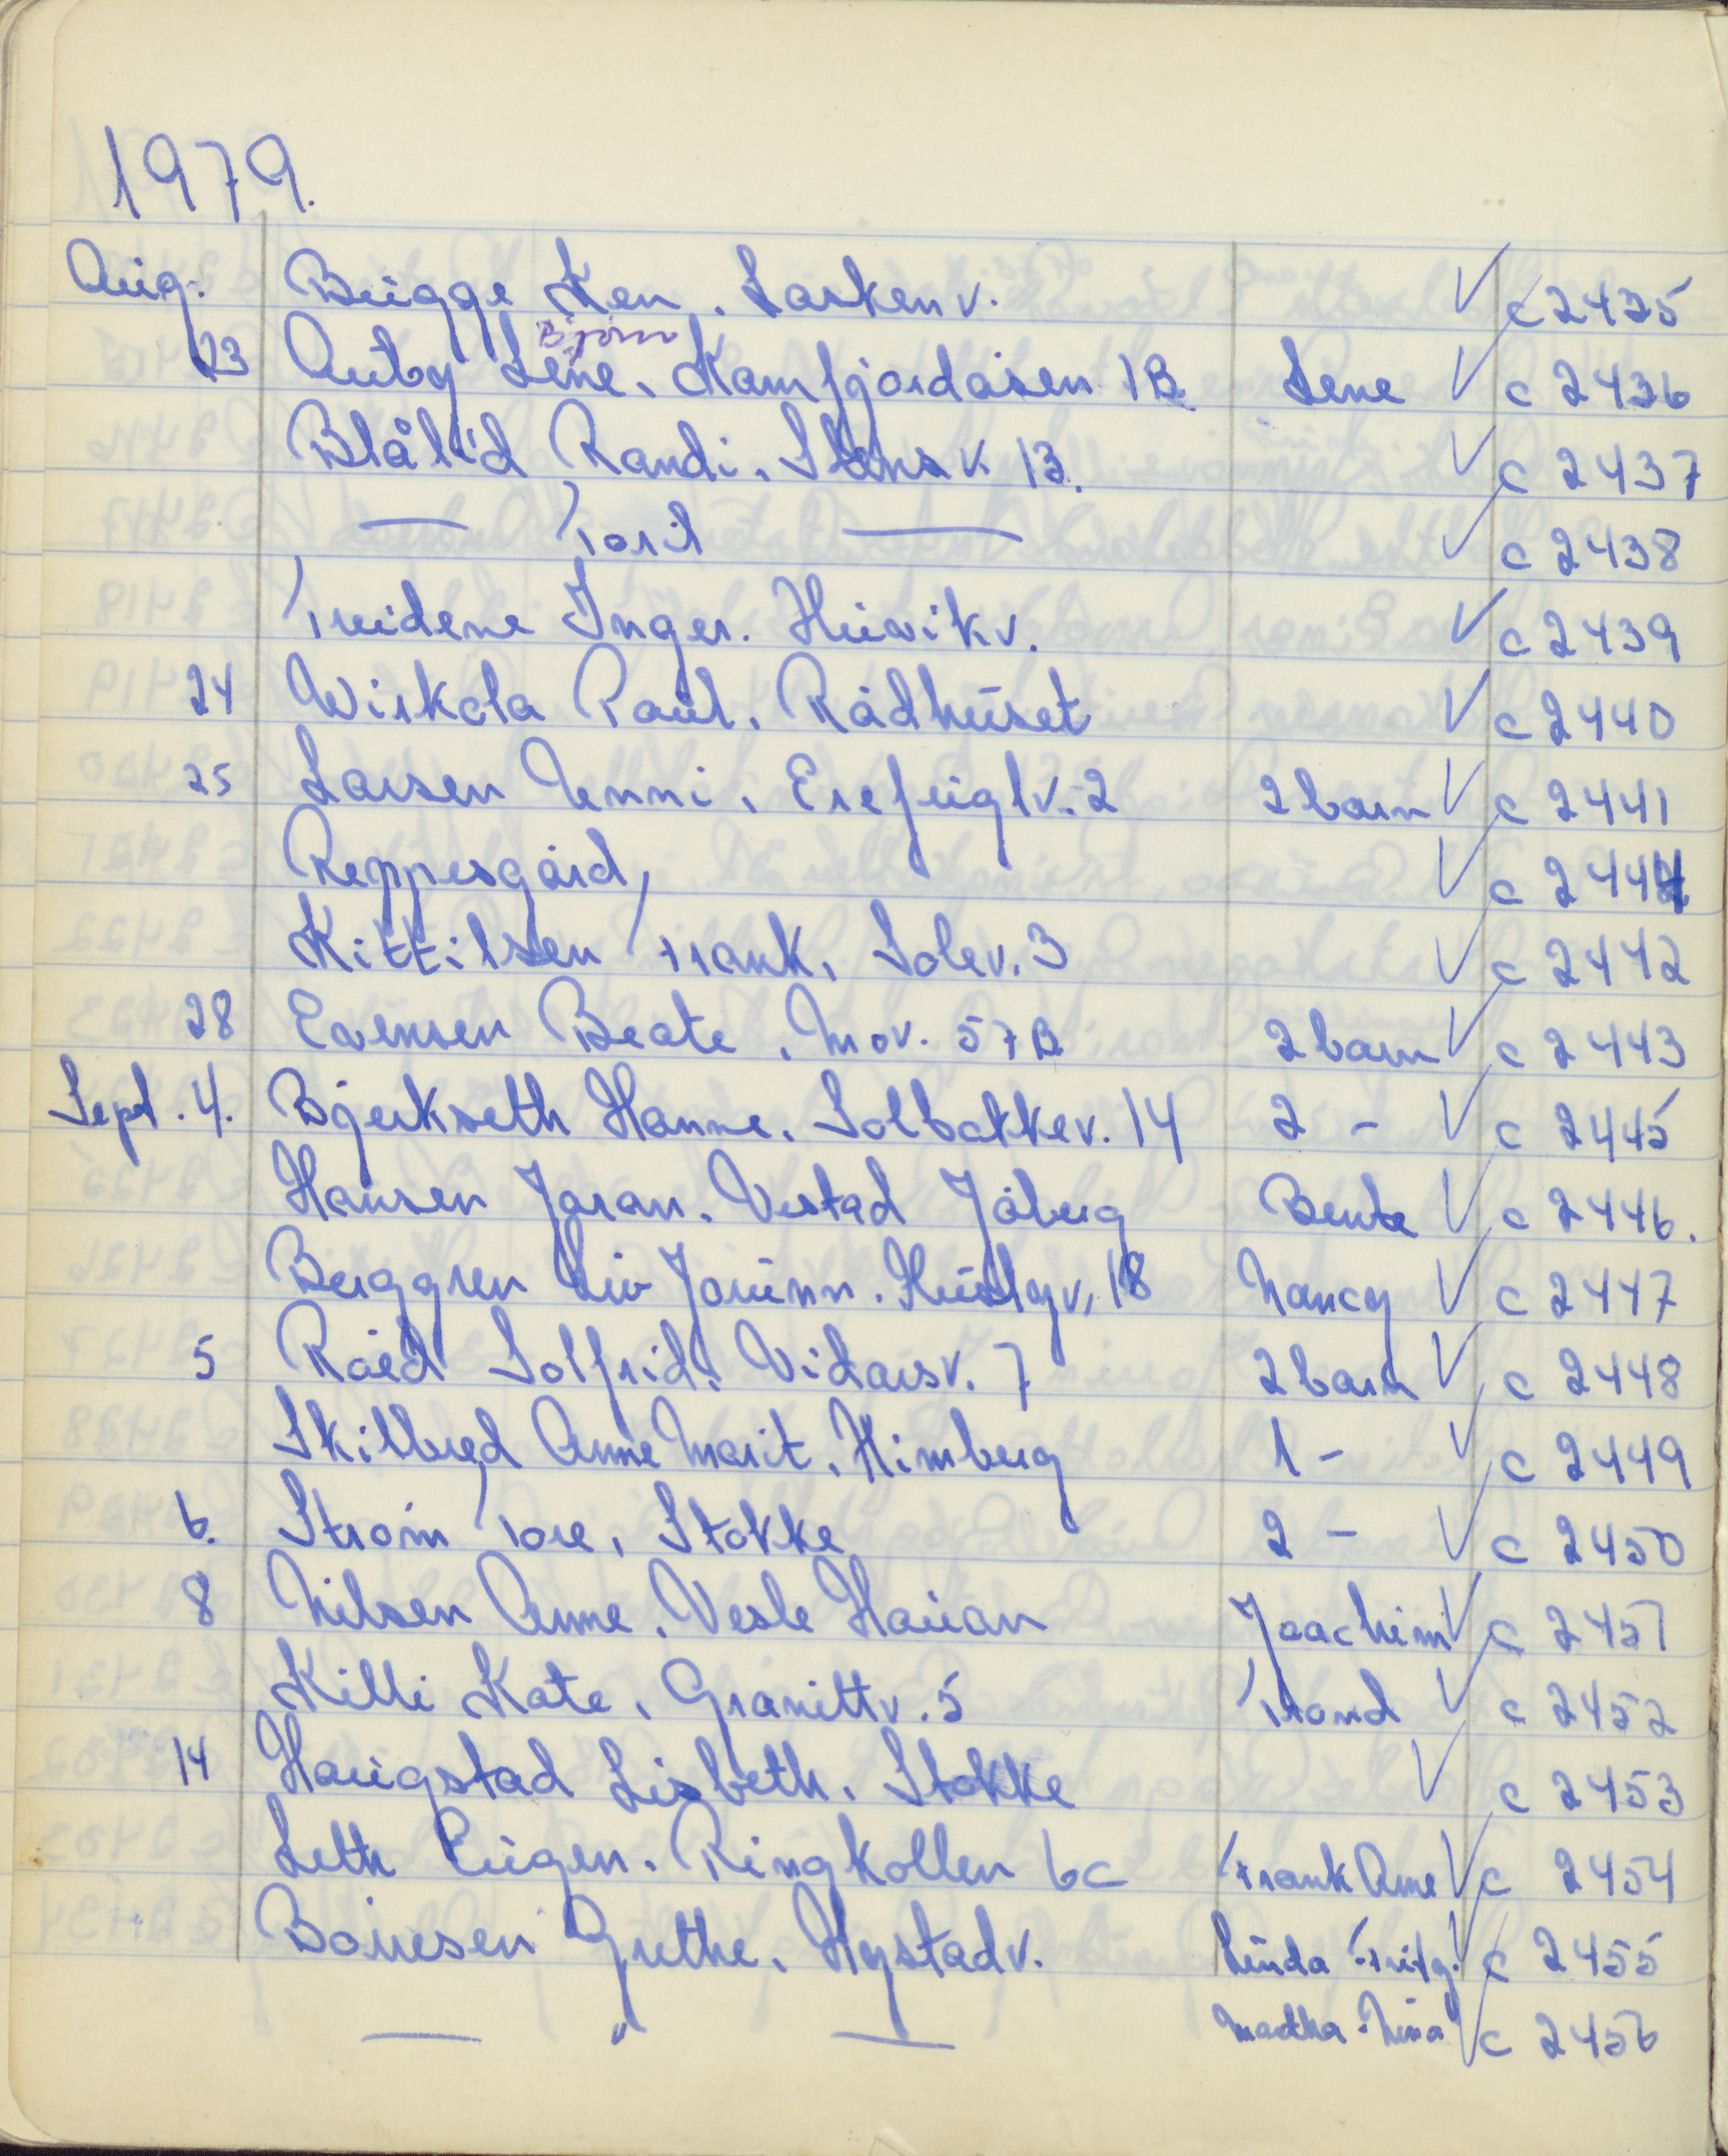 1979.
Aug. Bugge Ken, Larkenv. ✓ c 2435
Bjørn
23 Auby Lene, Kamfjordåsen 1B Lene ✓ c 2436
Blålid Randi, 13. ✓ c 2437
— Toril — ✓ c 2438
Tveidene Inger. Huvikv. ✓ c 2439
24 Wirkola Paul, Rådhuset ✓ c 2440
25 Larsen Unni, Erefuglv. 2 2 barn ✓ c 2441
Reppesgård, ✓ c 2444
Kittilsen Frank, Solev. 3 ✓ c 2442
28 Evensen Beate, Mov. 57B 2 barn ✓ c 2443
Sept. 4. Bjerkseth Hanne, Solbakkev. 14 2 - ✓ c 2445
Hansen Joran, Vestad Jåberg Bente ✓ c 2446.
Berggren Liv Jorunn. 18 Nancy ✓ c 2447
5 Råed Solfrid, Vidarsv. 7 2 barn ✓ c 2448
Skilbred Anne Marit, Himberg 1 - ✓ c 2449
6. Strøm Tore, Stokke 2 - ✓ c 2450
8 Nilsen Anne, Vesle Hauan Joachim ✓ c 2451
Killi Kate, Granittv. 5 Trond ✓ c 2452
14 Haugstad Lisbeth, Stokke ✓ c 2453
Leth Eugen. Ringkollen 6c Frank Arne ✓ c 2454
Bonesen Grethe, Hystadv. Linda ✓ c 2455
— " — Nina ✓ c 2456